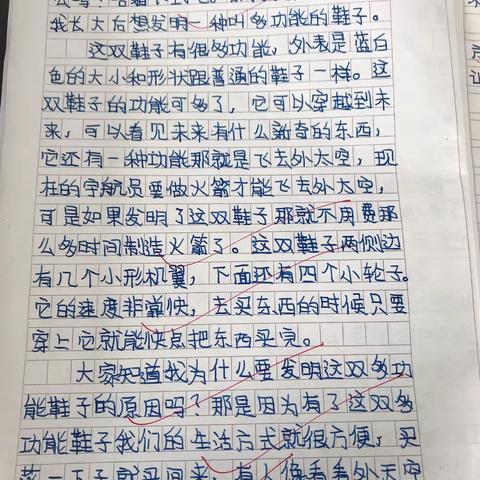 我长大后想发明一种叫多功能的鞋子。
这双鞋子有很多功能，外表是蓝白
色的大小和形状跟普通的鞋子一样。这
双鞋子的功能可多了，它可以穿越到未
来，可以看见未来有什么新奇的东西，
它还有一种功能那就是飞去外太空，现
在的宇航员要做火箭才能飞去外太空，
可是如果发明了这双鞋子那就不用费那
么多时间制造火箭了。这双鞋子两侧边
有几个小形机翼，下面还有四个小轮子。
它的速度非常快，去买东西的时候只要
穿上它就能快点把东西买完。
大家知道我为什么要发明这双多功
能鞋子的原因吗？那是因为有了这双多
功能鞋子我们的生活方式就很方便，买
菜一下子就买回来，有人像看看外天空